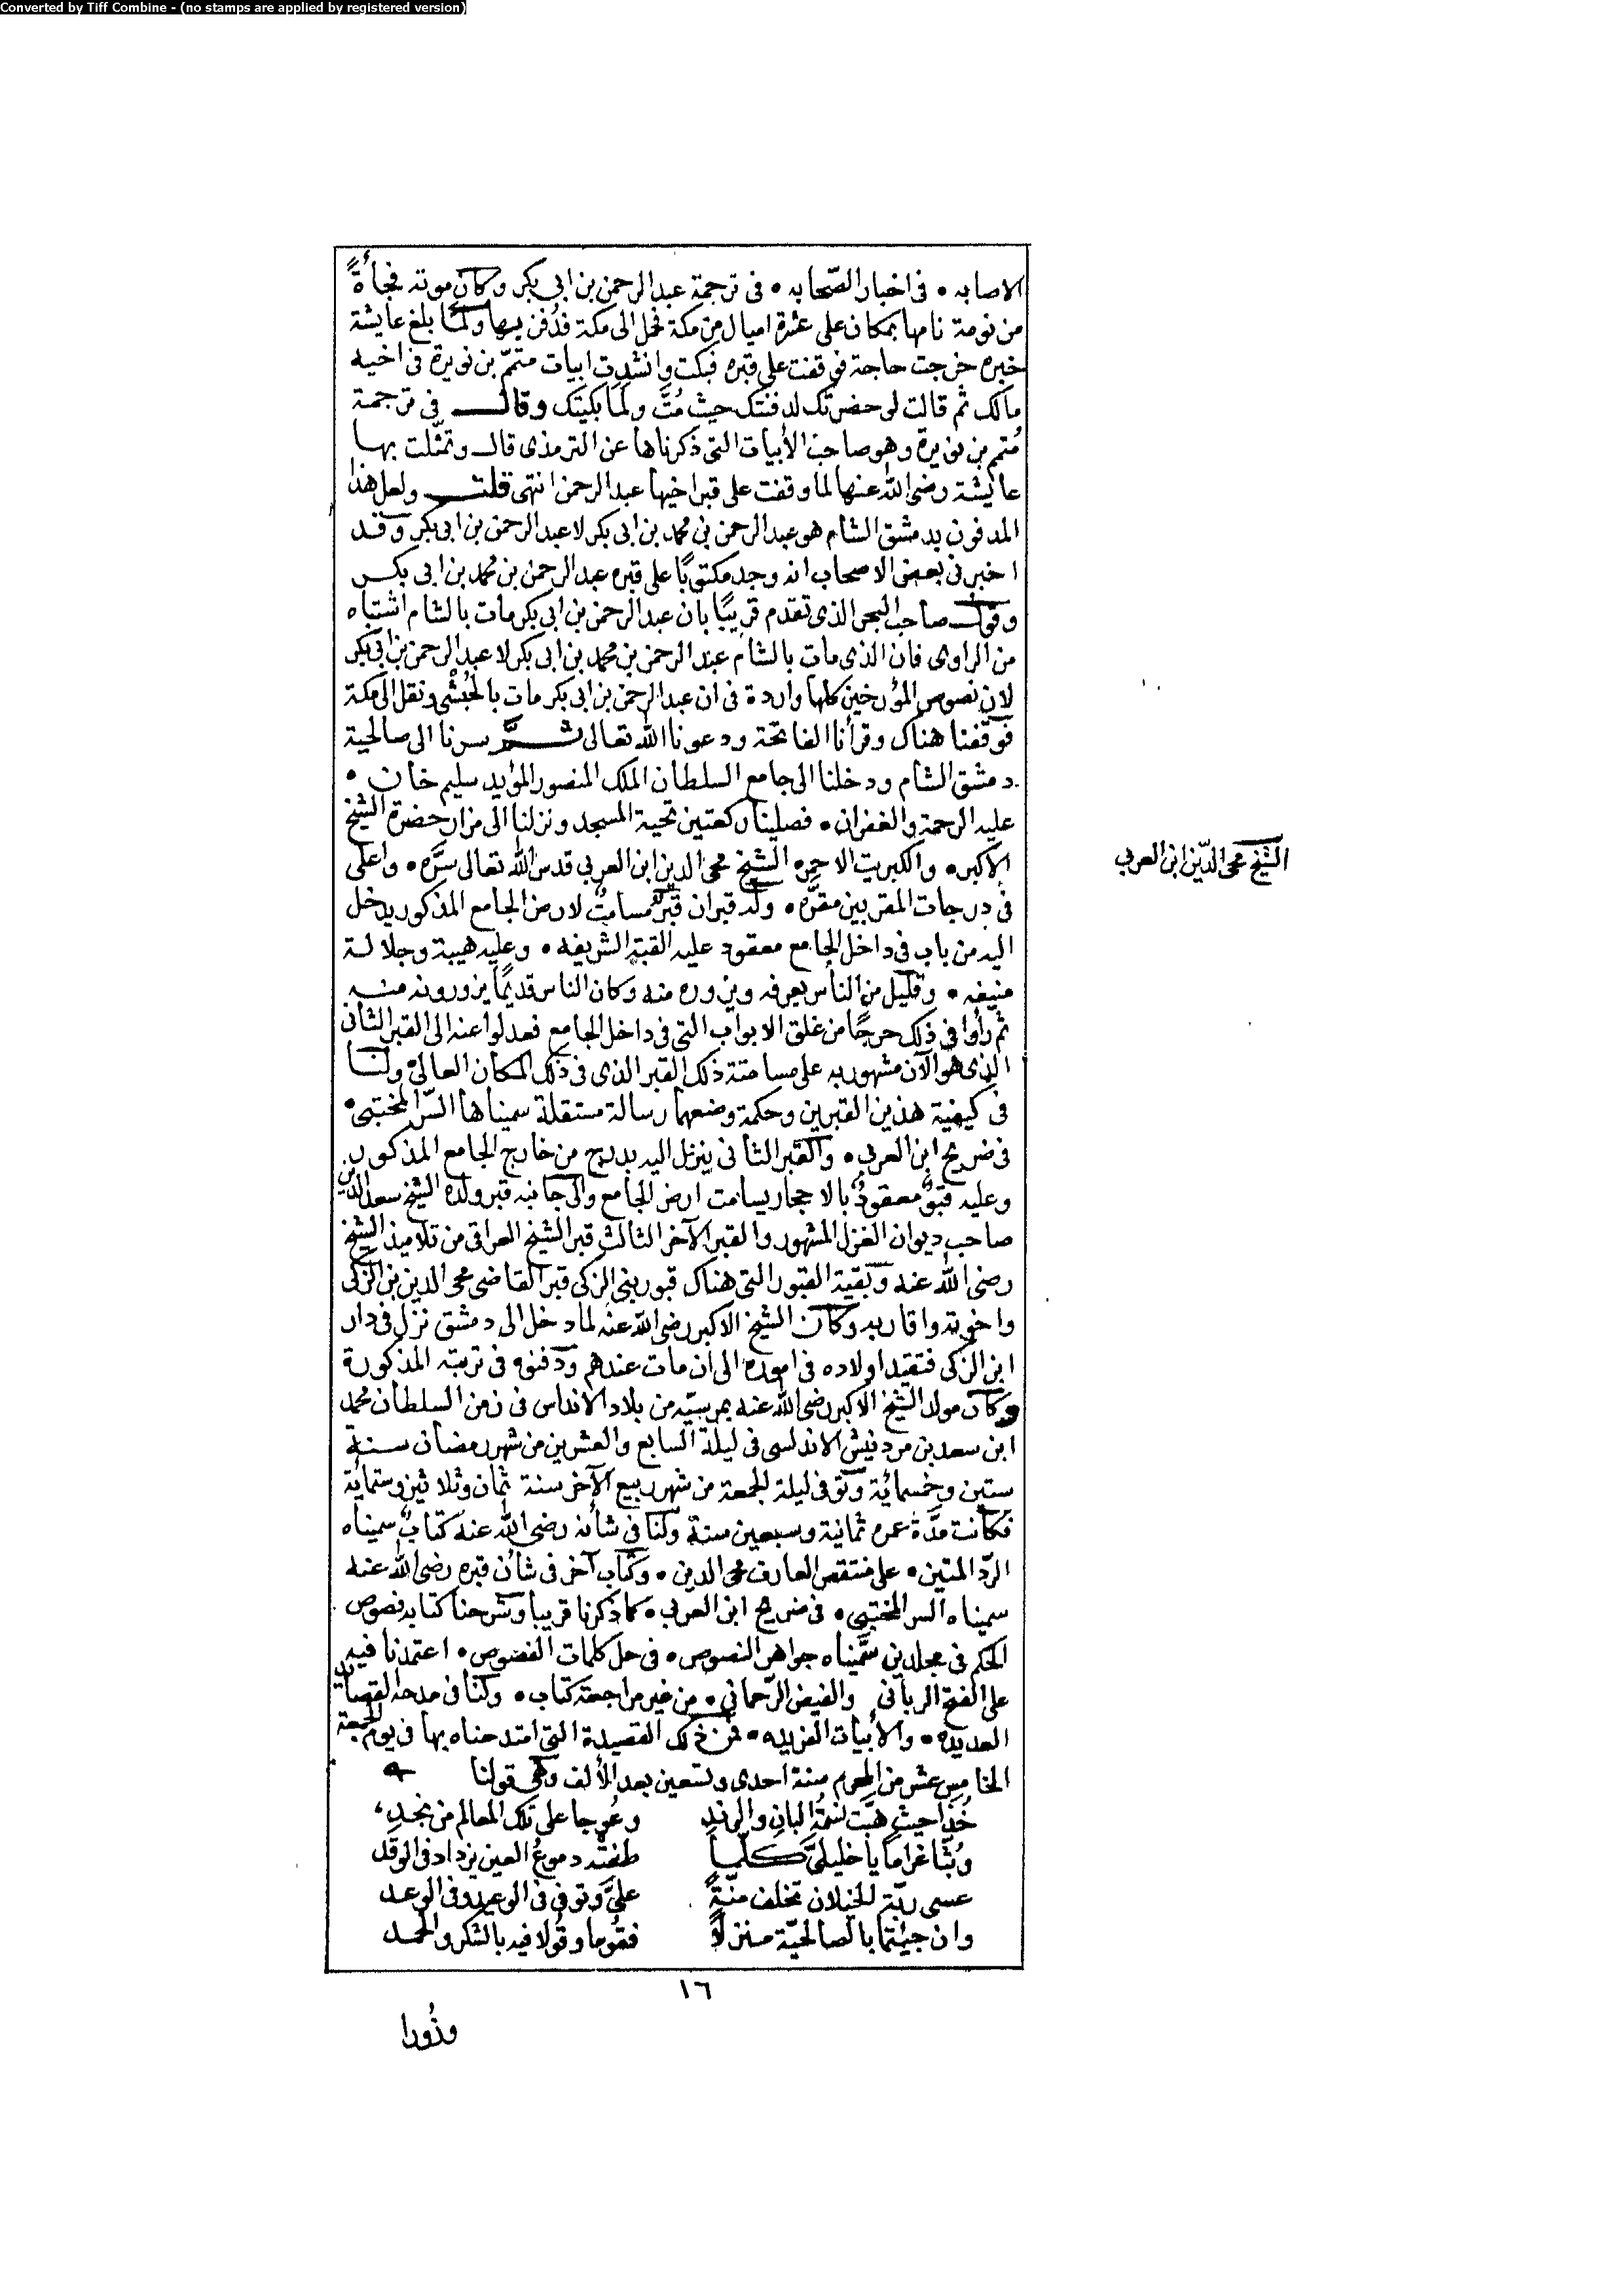 Converted by Tiff Combine - (no stamps are applied by registered version)
الاصابه • فى اخبار الصّحابه • فى ترجمة عبد الرحمن بن ابى بكر وكان موته فجأةً
من نومة نامها بمكان على عشرة اميال من مكة فحمل الى مكة فدُفن بها ولمّا بلغ عايشة
خبره خرجت حاجة فوقفت على قبره فبكت وانشدت ابيات متمّم بن نويرة فى اخيه
مالك ثم قالت لو حضرتك لدفنتك حيث مُتَّ ولما بكيتك وقال فى ترجمة
مُتمم بن نويرة وهو صاحب الأبيات التى ذكرناها عن الترمذى قال وتمثّلت بها
عائيشة رضى الله عنها لما وقفت على قبر اخيها عبد الرحمن انتهى قلت ولعل هذا
المدفون بدمشق الشام هو عبد الرحمن بن محمد بن ابى بكر لا عبد الرحمن بن ابى بكر وقد
اخبرنى بعض الاصحاب انه وجد مكتوبًا على قبره عبد الرحمن بن محمد بن ابى بكر
وقول صاحب البحر الذى تقدم قريبًا بان عبد الرحمن بن ابى بكر مات بالشام اشتباه
من الراوى فان الذى مات بالشام عبد الرحمن بن محمد بن ابى بكر لا عبد الرحمن بن ابى بكر
لان نصوص المؤرخين كلها واردة فى ان عبد الرحمن بن ابى بكر مات بالحُبْشى ونقل الى مكة
فوقفنا هناك وقرأنا الفاتحة ودعونا الله تعالى ثمَّ سرنا الى صالحية
دمشق الشام ودخلنا الى جامع السلطان الملك المنصور المؤيد سليم خان •
عليه الرحمة والغفران • فصلينا ركعتين تحية المسجد ونزلنا الى مزار حضرة الشيخ
الاكبر • والكبريت الاحمر • الشيخ محى الدين ابن العربي قدس الله تعالى سرَّه • واعلى
الشيخ محى الدّين ابن العربي
فى درجات المقربين مقرَّه • وله قبران قبرٌ مسامتٌ لارض الجامع المذكور يدخل
اليه من باب فى داخل الجامع معقود عليه القبة الشريفه • وعليه هيبة وجلالة
منيفه • وقليل من الناس يعرفه ويزوره منه وكان الناس قديمًا يزورونه منه
ثم رأوا فى ذلك حرجًا من غلق الابواب التى فى داخل الجامع فعدلوا عنه الى القبر الثانى
الذى هو الآن مشهور به على مسامتة ذلك القبر الذى فى ذلك المكان العالى ولنا
فى كيفية هذين القبرين وحكمة وضعهما رسالة مستقلة سميناها السّر المختبى •
فى ضريح ابن العربى • والقبر الثانى ينزل اليه بدرج من خارج الجامع المذكور
وعليه قبوٌ معقودٌ بالاحجار يسامت ارض الجامع والى جانبه قبر ولده الشيخ سعد الدين
صاحب ديوان الغزل المشهور والقبر الآخر الثالث قبر الشيخ العراقى من تلاميذ الشيخ
رضى الله عنه وبقية القبور التى هناك قبور بنى الزكى قبر القاضى محى الدين بن الزكى
واخوته واقاربه وكان الشيخ الاكبر رضى الله عنه لما دخل الى دمشق نزل فى دار
ابن الزكى فتقيد اولاده فى اموره الى ان مات عندهم ودفنوه فى تربته المذكورة
وكان مولد الشيخ الاكبر رضى الله عنه بمرسيّة من بلاد الاندلس فى زمن السلطان محمد
ابن سعد بن مردنيش الاندلسى فى ليلة السابع والعشرين من شهر رمضان سنة
ستين وخمسمائة وتوفى ليلة الجمعة من شهر ربيع الآخر سنة ثمان وثلاثين وستمائة
فكانت مدَّة عمره ثمانية وسبعين سنة ولنا فى شأنه رضى الله عنه كتابٌ سميناه
الردّ المتين • على منتقص العارف محى الدين • وكتاب آخر فى شأن قبره رضى الله عنه
سميناه السر المختبى • فى ضريح ابن العربى • كما ذكرنا قريبا وشرحنا كتابه فصوص
الحكم فى مجلدين سمَّيناه جواهر النصوص • فى حل كلمات الفصوص • اعتمدنا فيه
على الفتح الربانى والفيض الرّحمانى • من غير مراجعة كتاب • ولنا فى مدحه القصائد
العديده • والأبيات الفريده • فمن ذلك القصيدة التى امتدحناه بها فى يوم الجمعة
الخامس عشر من المحرم سنة احدى وتسعين بعد الألف وهى قولنا
خُذا حيث هبّت نسمةُ البانِ والرندِ وعُوجا على تلك المعالم من نجدِ
وبُثّا غراما يا خليليَّ كلّما طفتْه دموعُ العين يزداد فى الوقد
عسى ربّة الخيلان تخلف منّةً علىَّ وتوفى فى الوعيد وفى الوعد
وان جيئتما بالصالحيّة منزلاً فقوما وقُولا فيه بالشكر والحمد
١٦
وزُورا